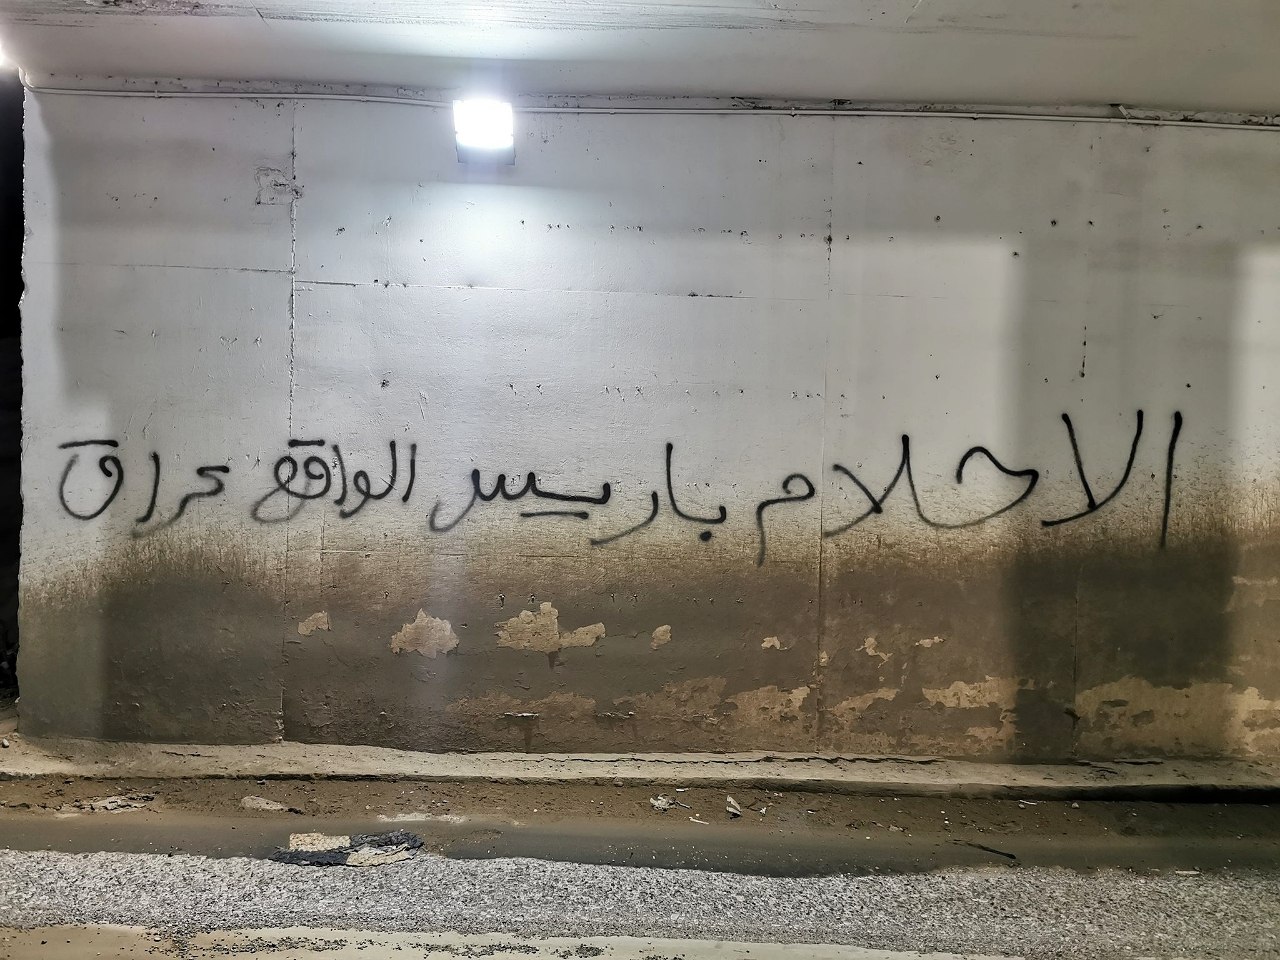 الاحلام باريس الواقع عراق